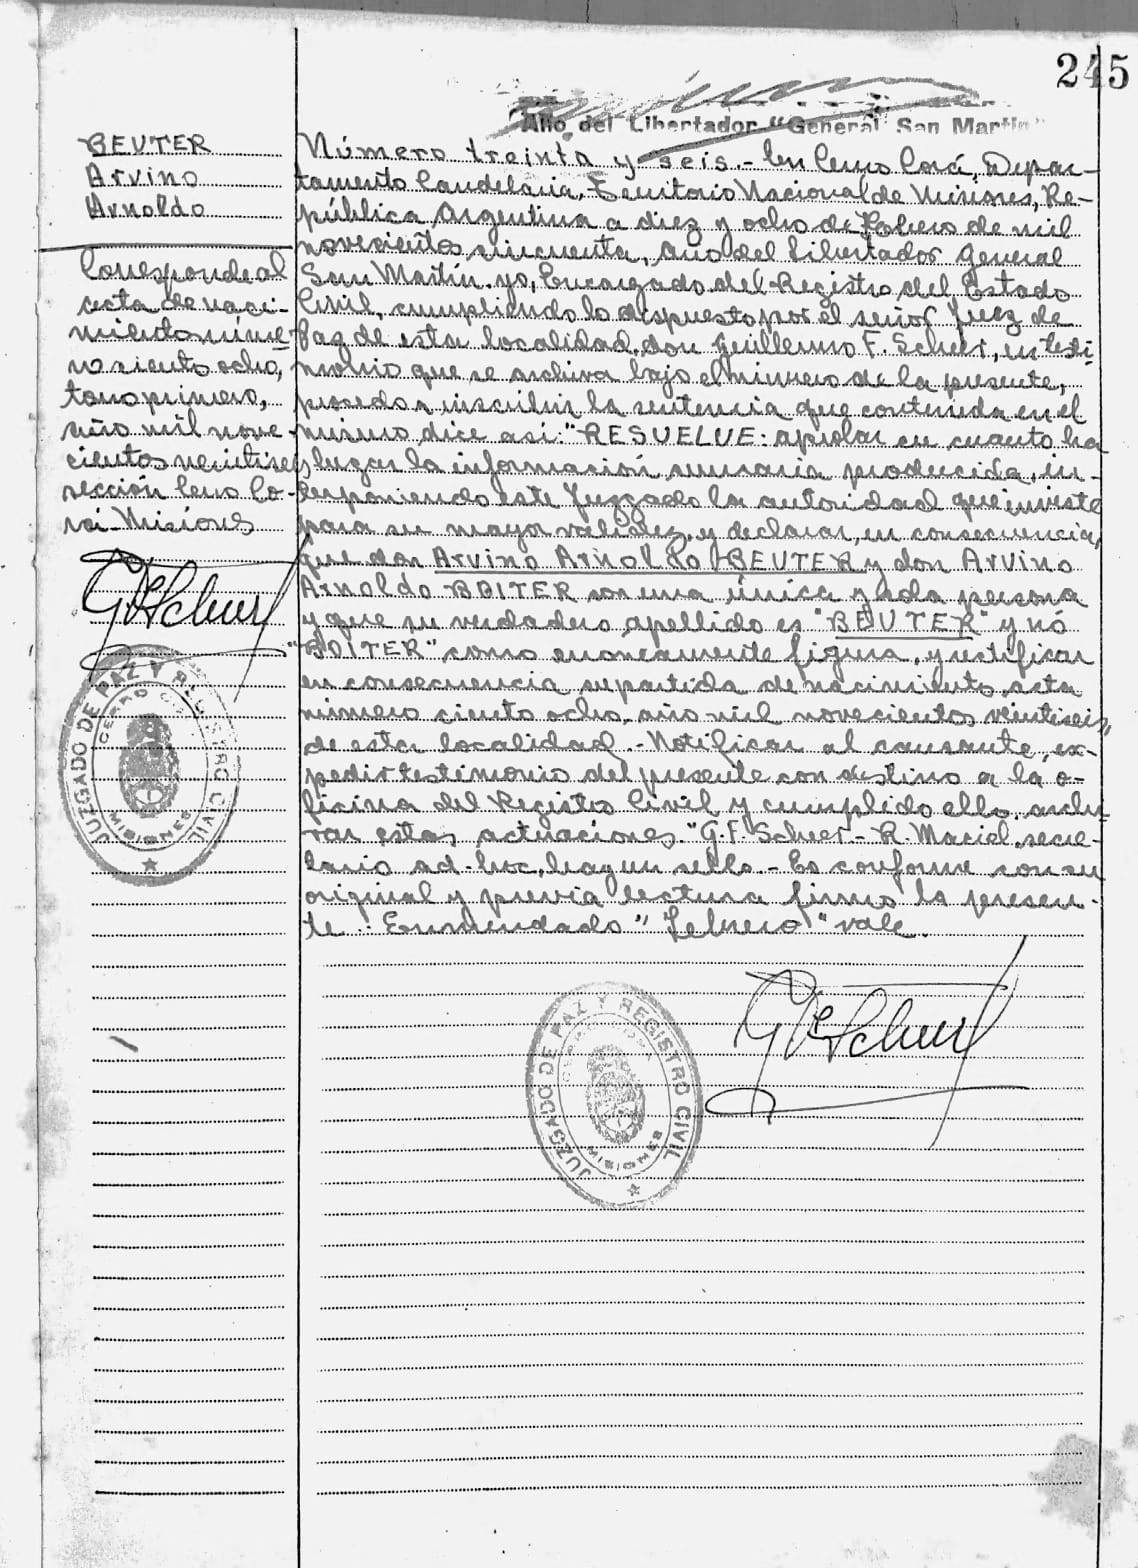 245
Año del Libertador "General San Martín"
BEUTER
Arvino
Arnoldo
Corresponde al
acta de naci-
miento núme-
ro ciento ocho,
tomo primero,
año mil nove-
cientos veintiseis,
sección Cerro Co-
rá - Misiones
Número treinta y seis.- En Cerro Corá, Depar-
tamento Candelaria, Territorio Nacional de Misiones, Re-
pública Argentina a diez y ocho de Febrero de mil
novecientos cincuenta, Año del Libertador General
San Martín. yo, Encargado del Registro del Estado
Civil, cumpliendo lo dispuesto por el señor Juez de
Paz de esta localidad, don Guillermo F. Scheer, en testi
monio que se archiva bajo el número de la presente,
procedo a inscribir la sentencia que contenida en el
mismo dice así: "RESUELVE: aprobar en cuanto ha
lugar la información sumaria producida, in-
terponiendo este Juzgado la autoridad que inviste
para su mayor validez, y declarar, en consecuencia,
que don Arvino Arnoldo BEUTER y don Arvino
Arnoldo BOITER son una única y sola persona
y que su verdadero apellido es "BEUTER" y nó
"BOITER" como erroneamente figura, y rectificar
en consecuencia su partida de nacimiento, acta
número ciento ocho, año mil novecientos veintiseis,
de esta localidad.- Notificar al causante, ex-
pedir testimonio del presente con destino a la o-
ficina del Registro Civil y cumplido ello, archi
var estas actuaciones." G. F. Scheer.- R. Maciel, secre-
tario ad-hoc, hay un sello.- Es conforme con su
original y previa lectura firmo la presen-
te.- Enmendado "Febrero" vale.
GFScheer
JUZGADO DE PAZ Y REGISTRO CIVIL
CERRO CORA
MISIONES
GFScheer
JUZGADO DE PAZ Y REGISTRO CIVIL
CERRO CORA
MISIONES